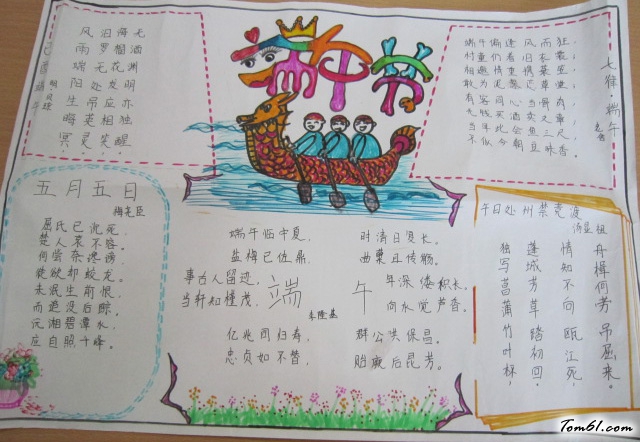 端午节
己酉端午
明 贝琼
风雨端阳生晦冥
汨罗无处吊英灵
海榴花发应相笑
无酒渊明亦独醒
七律·端午
老舍
端午偏逢风雨狂,
村童仍着旧衣裳;
相邀情重携蓑笠,
敢为泥深恋草堂;
有客同心当骨肉,
无钱买酒卖文章;
当年此会鱼三尺,
不似今朝豆味香。
五月五日
梅尧臣
屈氏已沉死,
楚人哀不容。
何尝奈谗谤,
徒欲却蛟龙。
未泯生前恨,
而追没后踪。
沅湘碧潭水,
应自照千峰。
端午
李隆基
端午临中夏,时清日复长。
盐梅已佐鼎,曲糵且传觞。
事古人留迹,年深缕积长。
当轩知槿茂,向水觉芦香。
亿兆同归寿,群公共保昌。
忠贞如不替,贻厥后昆芳。
午日处州禁竞渡
汤显祖
独写菖蒲竹叶杯,
蓬城芳草踏初回。
情知不向瓯江死,
舟楫何劳吊屈来。
Tom61.com